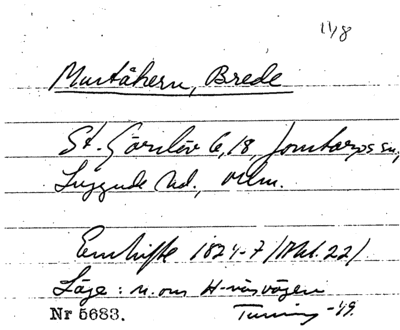 11/8
Murtåkern, Brede
St. Görslöv 6, 18, Jonstorps sn,
Luggude hd., Mlm.
Enskifte 1824-7 (Akt. 22)
Läge: n. om H-väsvägen
Nr 5683. -49.